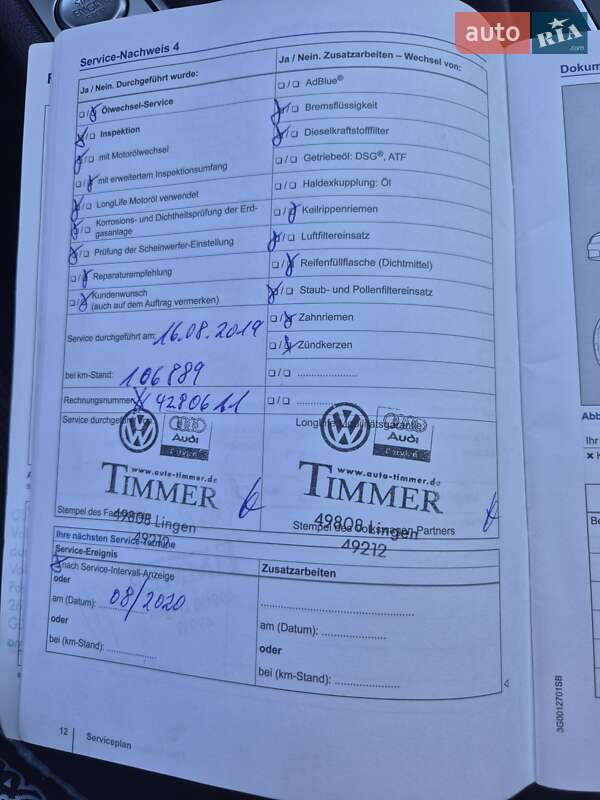 START
ENGINE
auto RIA .com
Service-Nachweis 4
Ja / Nein. Durchgeführt wurde:
Ölwechsel-Service
Inspektion
mit Motorölwechsel
mit erweitertem Inspektionsumfang
LongLife Motoröl verwendet
Korrosions- und Dichtheitsprüfung der Erd-
gasanlage
Prüfung der Scheinwerfer-Einstellung
Reparaturempfehlung
Kundenwunsch
(auch auf dem Auftrag vermerken)
Service durchgeführt am: 16.08.2019
bei km-Stand: 106889
Rechnungsnummer
Service durchgeführt
Audi
www.auto-timmer.de
TIMMER
Stempel des
49808 Lingen
49212
Ja / Nein. Zusatzarbeiten – Wechsel von:
AdBlue®
Bremsflüssigkeit
Dieselkraftstofffilter
Getriebeöl: DSG®, ATF
Haldexkupplung: Öl
Keilrippenriemen
Luftfiltereinsatz
Reifenfüllflasche (Dichtmittel)
Staub- und Pollenfiltereinsatz
Zahnriemen
Zündkerzen
LongLife Mobilitätsgarantie
Audi
www.auto-timmer.de
TIMMER
49808 Lingen
Stempel des Volkswagen Partners
49212
Ihre nächsten Service-Termine
Service-Ereignis
nach Service-Intervall-Anzeige
oder
am (Datum): 08/2020
oder
bei (km-Stand):
Zusatzarbeiten
am (Datum):
oder
bei (km-Stand):
12 Serviceplan
Dokum
Abb
Ihr
3G0012701SB